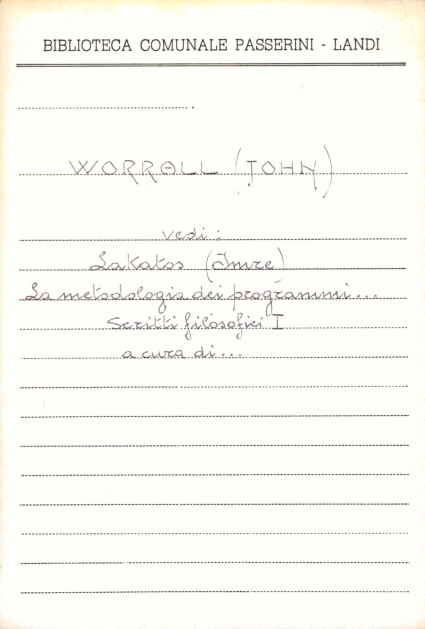 BIBLIOTECA COMUNALE PASSERINI - LANDI
WORRALL (JOHN)
vedi:
Lakatos (Imre)
La metodologia dei programmi...
Scritti filosofici I
a cura di...